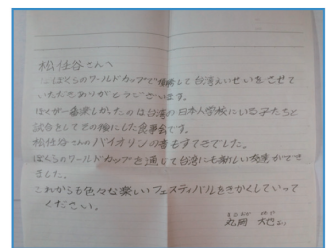 松任谷さんへ
ぼくらのワールドカップで優勝して台湾えんせいをさせて
いただきありがとうございます。
ぼくが一番楽しかったのは台湾の日本人学校にいる子たちと
試合をしてその後にした食事会です。
松任谷さんのバイオリンの音もすてきでした。
ぼくらのワールドカップを通して台湾にも新しい発見ができ
ました。
これからも色々な楽しいフェスティバルをきかくしていって
ください。
丸岡 大也より